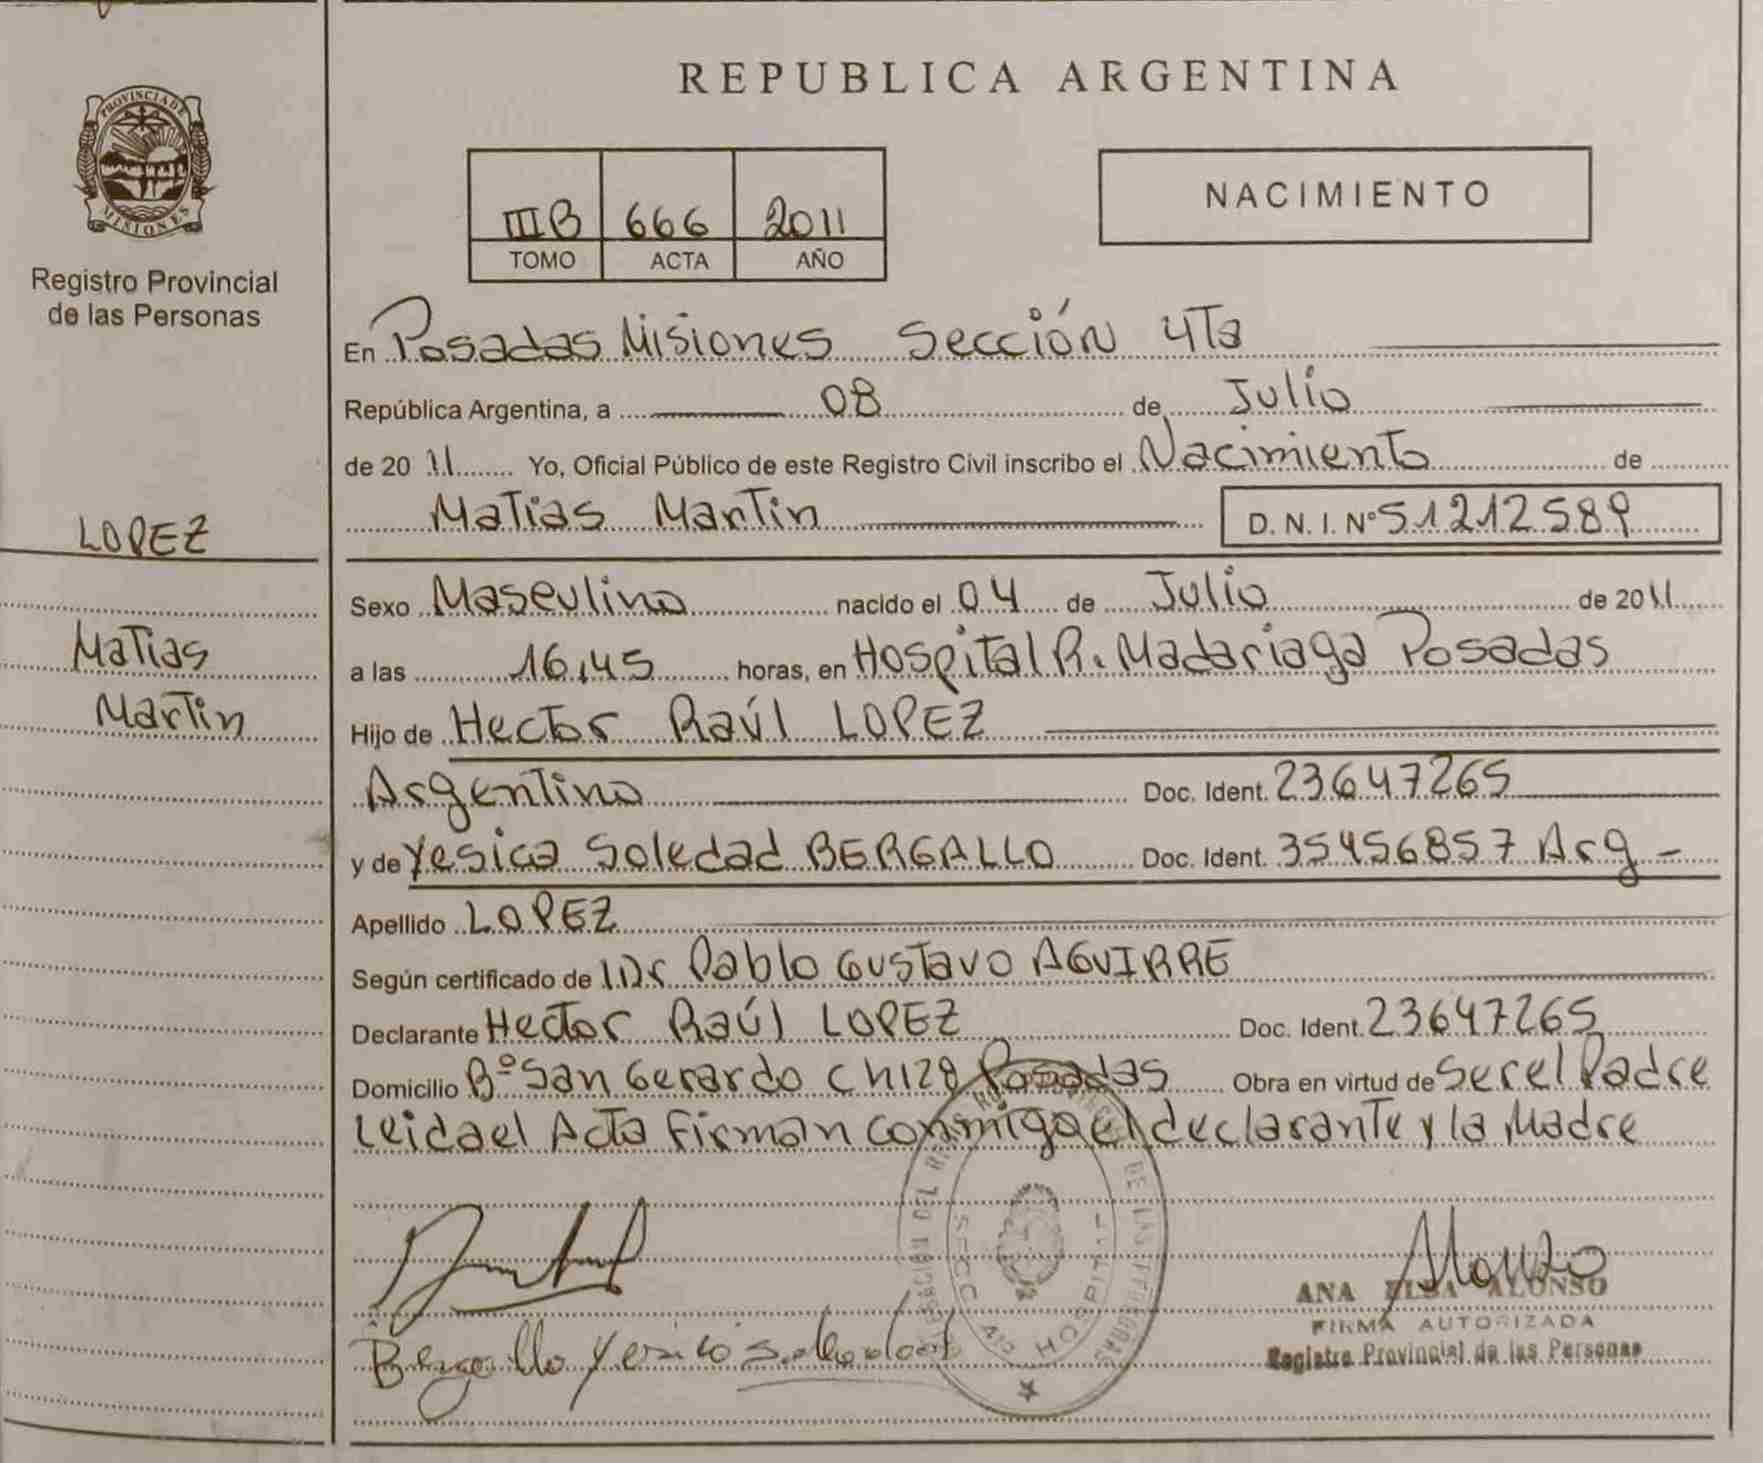 PROVINCIA DE
MISIONES
Registro Provincial
de las Personas
LOPEZ
Matias
Martin
REPUBLICA ARGENTINA
III B 666 2011
TOMO ACTA AÑO
NACIMIENTO
En Posadas Misiones Sección 4Ta
República Argentina, a 08 de Julio
de 20 11 Yo, Oficial Público de este Registro Civil inscribo el Nacimiento de
Matias Martin D. N. I. Nº 51212589
Sexo Masculino nacido el 04 de Julio de 2011
a las 16,45 horas, en Hospital R. Madariaga Posadas
Hijo de Hector Raúl LOPEZ
Argentino Doc. Ident. 23647265
y de Yesica Soledad BERGALLO Doc. Ident. 35456857 Arg -
Apellido LOPEZ
Según certificado de Dr Pablo Gustavo AGUIRRE
Declarante Hector Raúl LOPEZ Doc. Ident. 23647265
Domicilio Bº San Gerardo Ch 128 Posadas Obra en virtud de Ser el Padre
Leida el Acta Firman conmigo el declarante y la Madre
Alonso
ANA ELSA ALONSO
FIRMA AUTORIZADA
Registro Provincial de las Personas
Bergallo Yesica Soledad
DE LAS PERSONAS
HOSPITAL